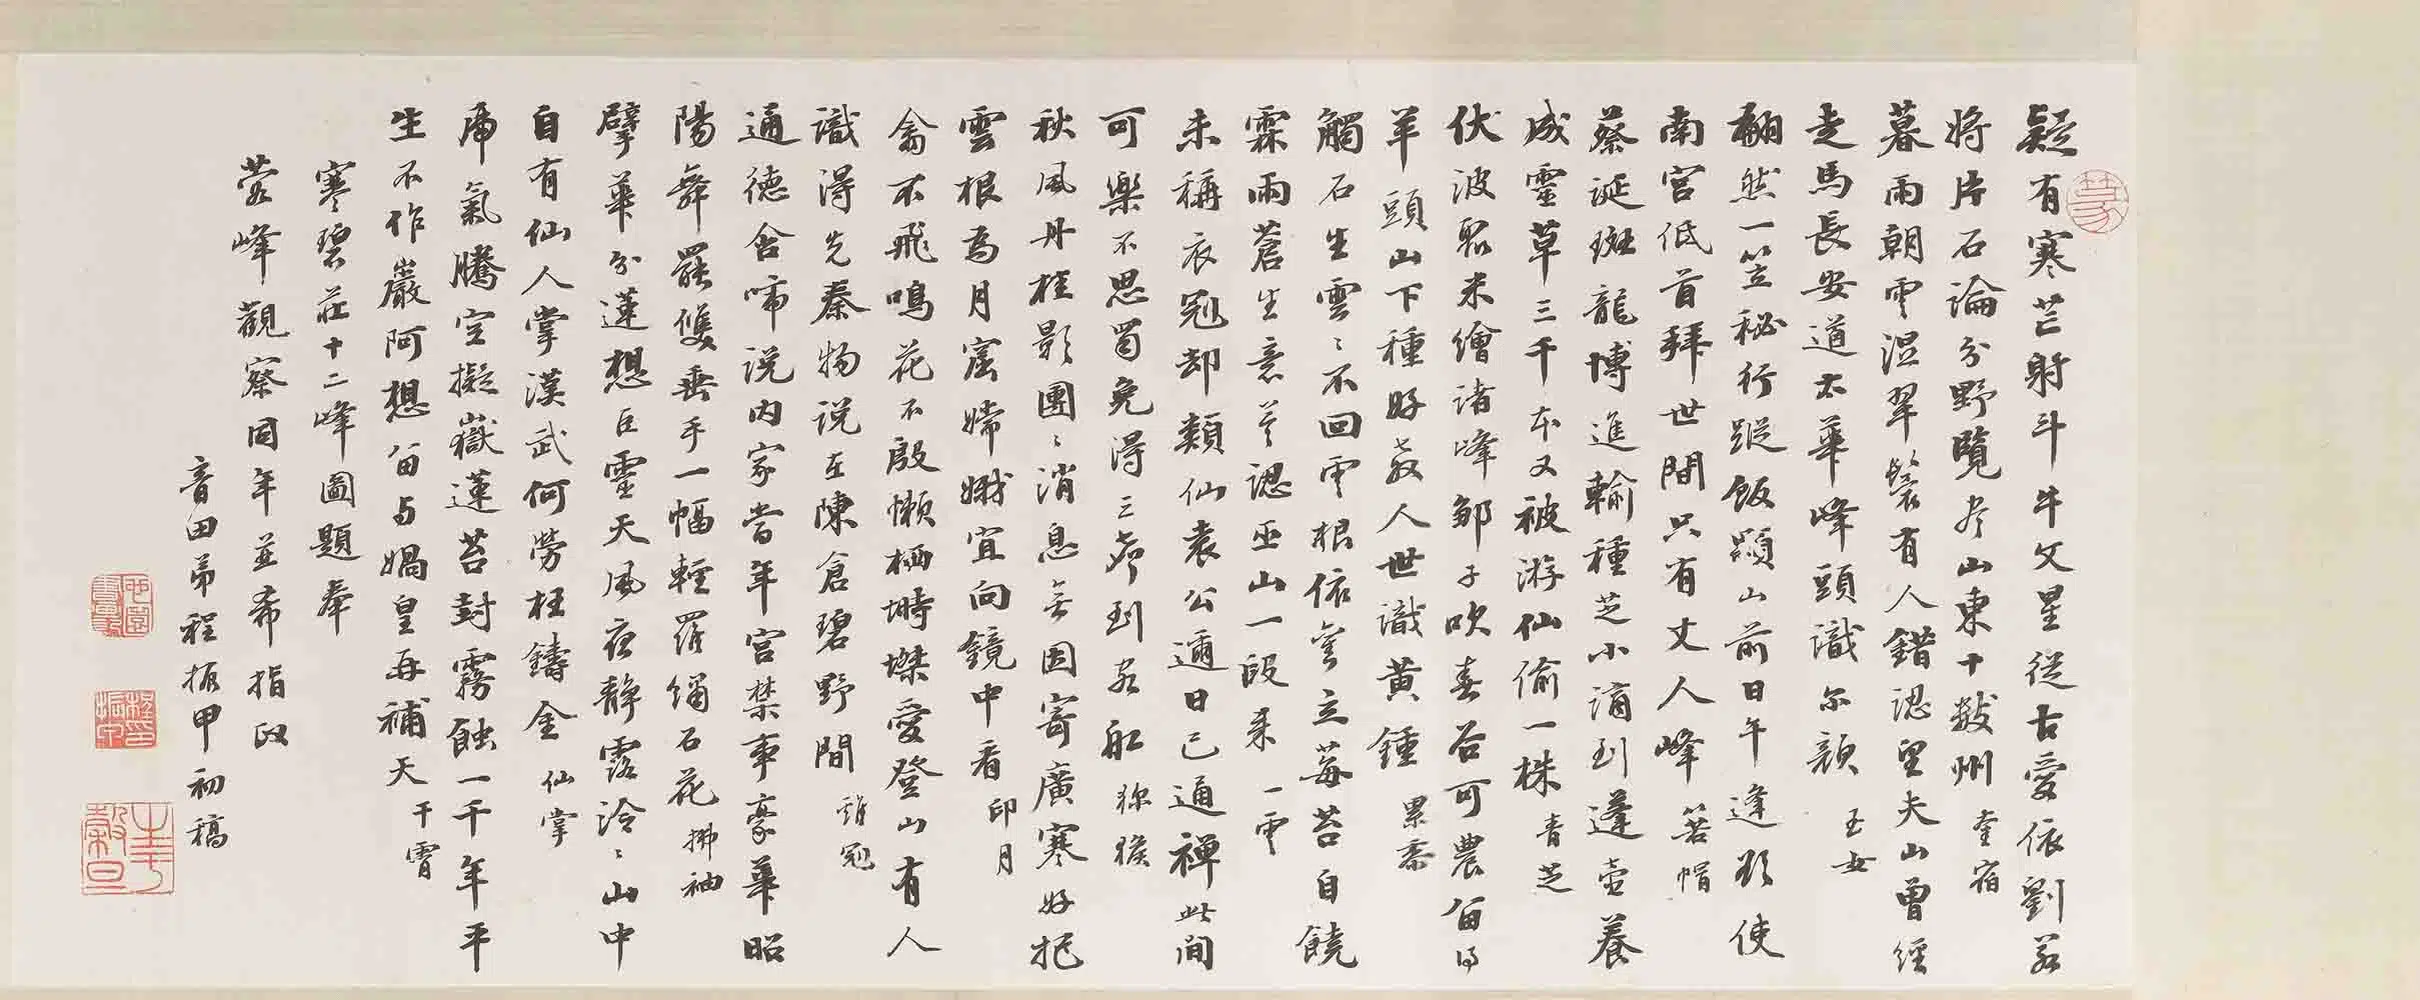 疑有寒芒射斗牛文星從古愛依劉若
將片石論分野覽尽山東十数州 奎宿
暮雨朝雲湿翠鬟有人錯認望夫山曽經
走馬長安道太華峰頭識尓顔 玉女
翩然一笠秘行蹤飯顆山前日午逢欲使
南宮低首拜世間只有丈人峰 箬帽
蔡誕斑龍博進輸種芝小謫到蓬壺養
成靈草三千本又被游仙偷一株 青芝
伏波聚米繪諸峰鄒子吹春谷可農留得
羊頭山下種好教人世識黄鍾 累黍
觸石生雲雲不回雲根依舊立莓苔自饒
霖雨蒼生意莫認巫山一段来 一雲
未稱衣冠却類仙袁公邇日已通禅此间
可樂不思蜀免淂三声到客船 猕猴
秋風丹桂影團團消息無因寄廣寒好把
雲根為月窟嫦娥宜向鏡中看 印月
翕不飛鳴花不殷懒栖塒桀愛登山有人
識淂先秦物説在陳倉碧野間 雞冠
通德含啼説内家當年宮禁事豪華昭
陽舞罷雙垂手一幅輕羅繡石花 拂袖
擘華分蓮想巨靈天風夜静露泠泠山中
自有仙人掌漢武何勞枉鑄金 仙掌
虎氣騰空擬嶽蓮苔封霧蝕一千年平
生不作巖阿想留与媧皇再補天 干霄
寒碧莊十二峰圖題奉
蓉峰觀察同年並希指政
音田弟程振甲初稿